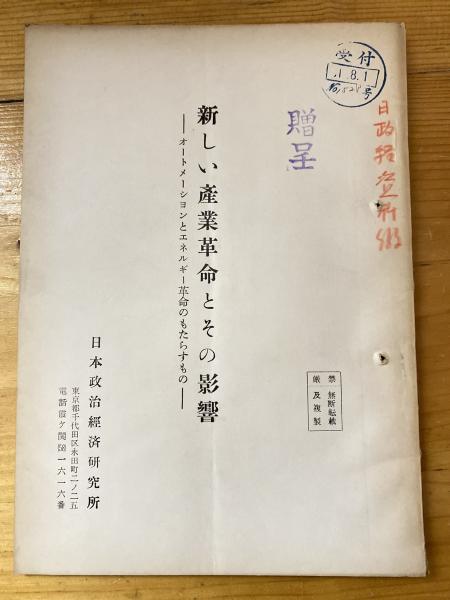 受付
1.8.1
号
贈呈
新しい產業革命とその影響
――オートメーションとエネルギー革命のもたらすもの――
禁 無断転載
厳 及複製
日本政治經済研究所
東京都千代田区永田町二ノ二五
電話霞ケ関(58)一六一六番